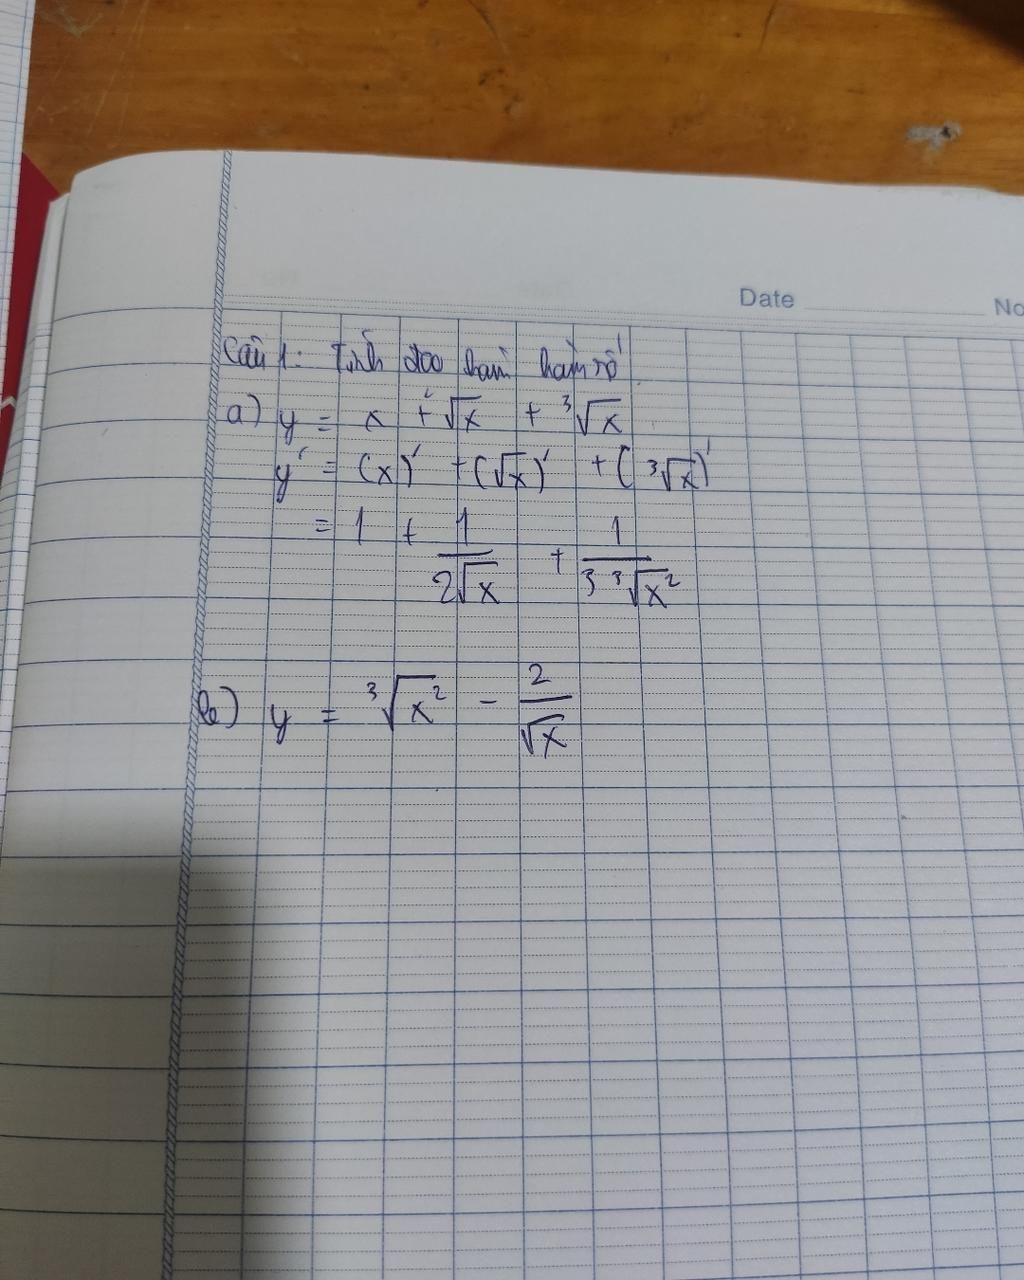 Date No
Câu 1: Tính đạo hàm hàm số
a) y = x + √x + ³√x
y' = (x)' + (√x)' + (³√x)'
= 1 + 1/(2√x) + 1/(3 ³√x²)
b) y = ³√x² - 2/√x